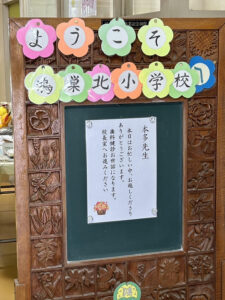 ようこそ
鴻巣北小学校へ
本多先生
本日はお忙しい中、お越しくださり
ありがとうございます。
歯科健診お世話になります。
校長室へお進みください。